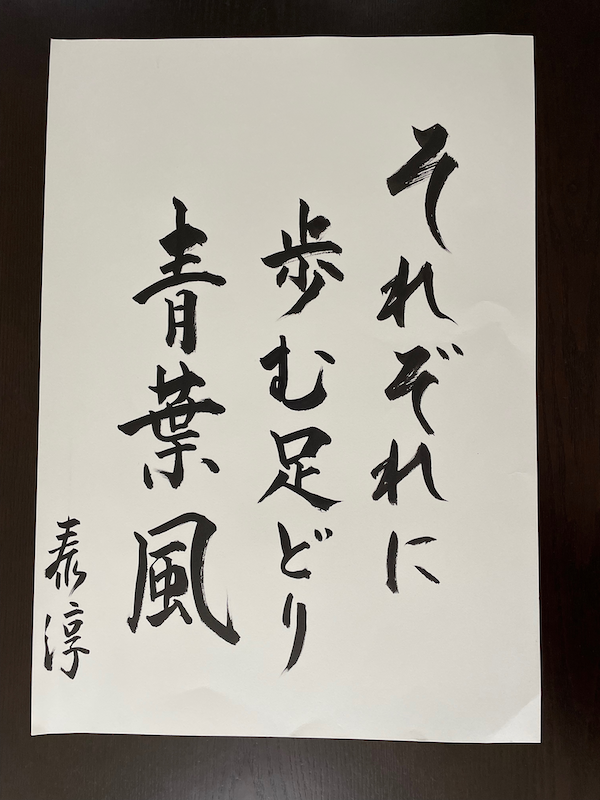 それぞれに
歩む足どり
青葉風
泰淳